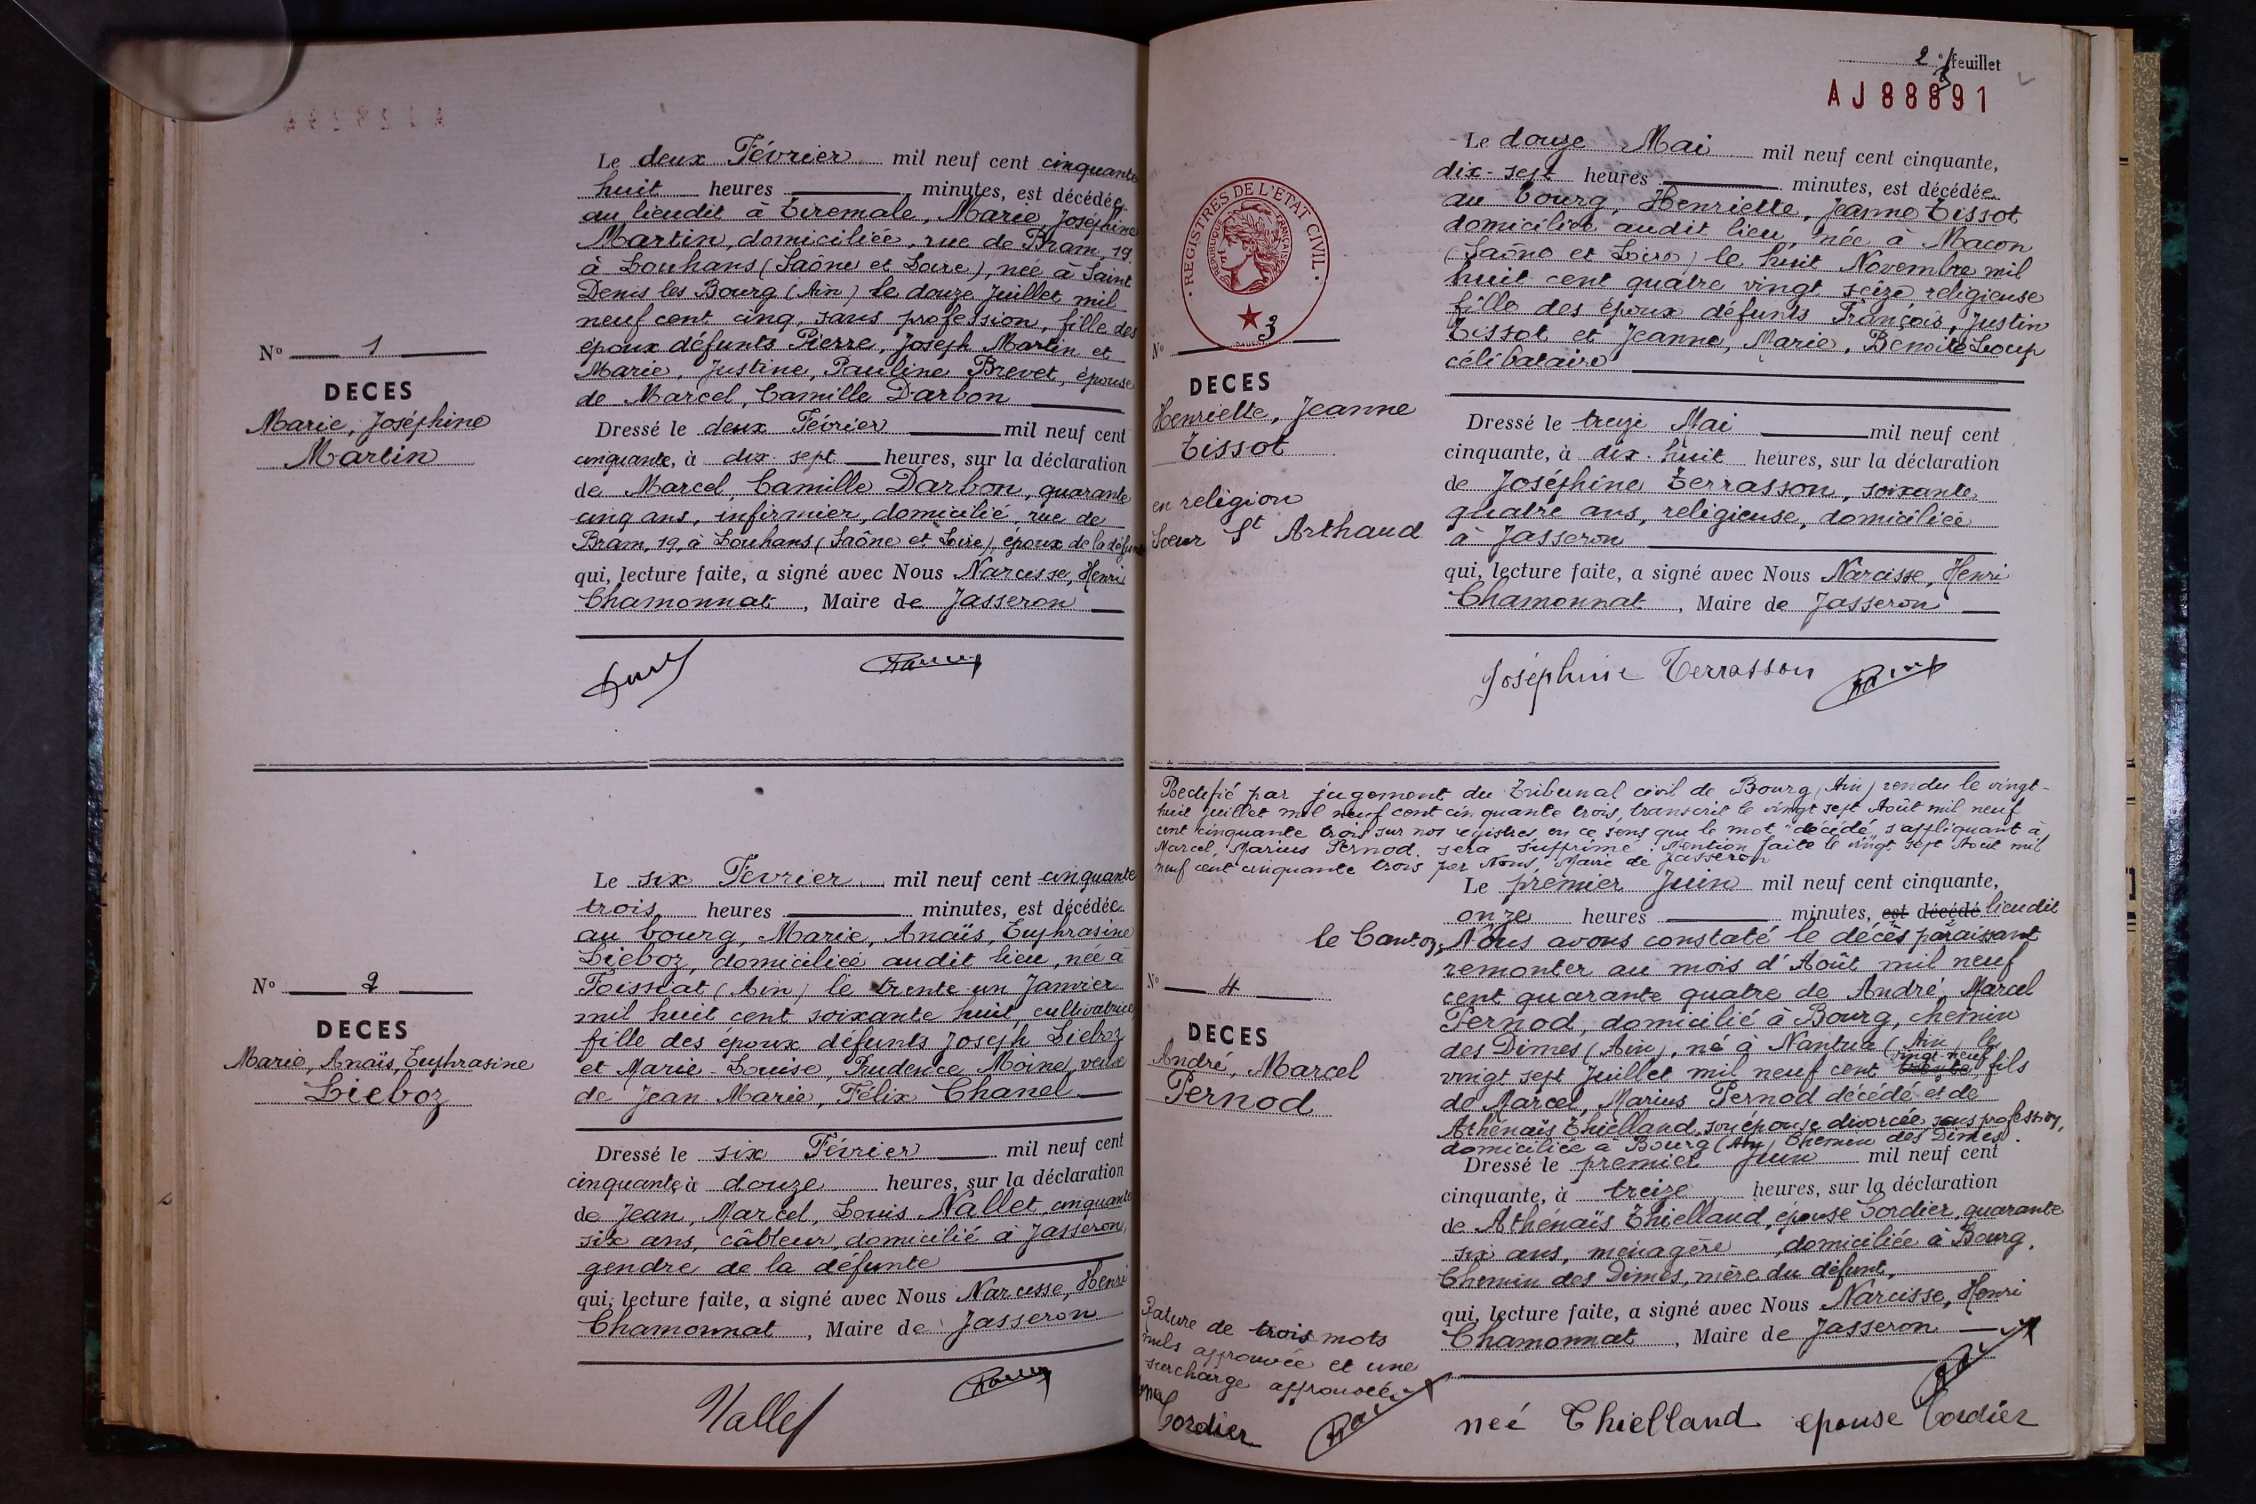 Le deux Février mil neuf cent cinquante
huit heures minutes, est décédée
au lieudit à Tiremale, Marie, Joséphine
Martin, domiciliée, rue de Bram, 19
à Louhans (Saône et Loire), née à Saint
Denis les Bourg (Ain) le douze Juillet mil
neuf cent cinq, sans profession, fille des
époux défunts Pierre, Joseph Martin et
Marie, Justine, Pauline Brevet, épouse
de Marcel, Camille Darbon
N° 1
DECES
Marie, Joséphine
Martin
Dressé le deux Février mil neuf cent
cinquante, à dix-sept heures, sur la déclaration
de Marcel, Camille Darbon, quarante
cinq ans, infirmier, domicilié, rue de
Bram, 19, à Louhans (Saône et Loire), époux de la défunte
qui, lecture faite, a signé avec Nous Narcisse, Henri
Chamonnat, Maire de Jasseron
Le six Février mil neuf cent cinquante
trois heures minutes, est décédée
au bourg, Marie, Anaïs, Euphrasine
Lieboz, domiciliée audit lieu, née à
Foissiat (Ain) le trente un Janvier
mil huit cent soixante huit, cultivatrice
fille des époux défunts Joseph Lieboz
et Marie-Louise, Prudence Moine, veuve
de Jean Marie, Félix Chanel
N° 2
DECES
Marie, Anaïs, Euphrasine
Lieboz
Dressé le six Février mil neuf cent
cinquante, à douze heures, sur la déclaration
de Jean, Marcel, Louis Nallet, cinquante
six ans, câbleur, domicilié à Jasseron,
gendre de la défunte
qui, lecture faite, a signé avec Nous Narcisse, Henri
Chamonnat, Maire de Jasseron
Nallet
2e feuillet
AJ88891
REGISTRES DE L'ETAT CIVIL
REPUBLIQUE FRANÇAISE
Le douze Mai mil neuf cent cinquante,
dix-sept heures minutes, est décédée
au bourg, Henriette, Jeanne Tissot
domiciliée audit lieu, née à Macon
(Saône et Loire) le huit Novembre mil
huit cent quatre vingt seize religieuse
fille des époux défunts François, Justin
Tissot et Jeanne, Marie, Benoite Loup
célibataire
N° 3
DECES
Henriette, Jeanne
Tissot
en religion
Soeur St Arthaud
Dressé le treize Mai mil neuf cent
cinquante, à dix-huit heures, sur la déclaration
de Joséphine Terrasson, soixante
quatre ans, religieuse, domiciliée
à Jasseron
qui, lecture faite, a signé avec Nous Narcisse, Henri
Chamonnat, Maire de Jasseron
Joséphine Terrasson
Rectifié par jugement du Tribunal civil de Bourg (Ain) rendu le vingt-
huit juillet mil neuf cent cinquante trois, transcrit le vingt sept Août mil neuf
cent cinquante trois sur nos registres, en ce sens que le mot "décédé" s'appliquant à
Marcel Marius Pernod, sera supprimé. Mention faite le vingt sept Août mil
neuf cent cinquante trois par Nous, Maire de Jasseron
Le premier Juin mil neuf cent cinquante,
onze heures minutes, est décédé lieudit
le Canton, Nous avons constaté le décès paraissant
remonter au mois d'Août mil neuf
cent quarante quatre de André, Marcel
Pernod, domicilié à Bourg, chemin
des Dimes (Ain), né à Nantua (Ain) le
vingt sept Juillet mil neuf cent trente vingt-neuf, fils
de Marcel, Marius Pernod décédé et de
Athénaïs Thielland, son épouse divorcée, sans profession,
domiciliée à Bourg (Ain) Chemin des Dimes.
N° 4
DECES
André, Marcel
Pernod
Dressé le premier Juin mil neuf cent
cinquante, à treize heures, sur la déclaration
de Athénaïs Thielland, épouse Cordier, quarante
six ans, ménagère, domiciliée à Bourg,
Chemin des Dimes, mère du défunt,
qui, lecture faite, a signé avec Nous Narcisse, Henri
Chamonnat, Maire de Jasseron
Rature de trois mots
nuls approuvée et une
surcharge approuvée
Cordier
neé Thielland epouse Cordier